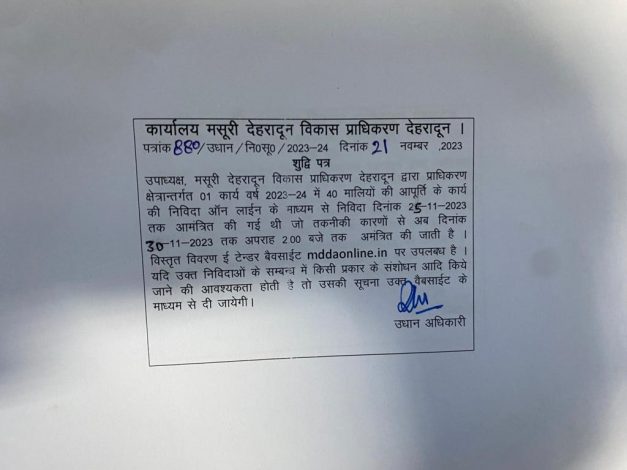 कार्यालय मसूरी देहरादून विकास प्राधिकरण देहरादून ।
पत्रांक 880/ उधान / नि0सू0 / 2023-24 दिनांक 21 नवम्बर ,2023
शुद्वि पत्र
उपाध्यक्ष, मसूरी देहरादून विकास प्राधिकरण देहरादून द्वारा प्राधिकरण
क्षेत्रान्तर्गत 01 कार्य वर्ष 2023-24 में 40 मालियों की आपूर्ति के कार्य
की निविदा ऑन लाईन के माध्यम से निविदा दिनांक 25-11-2023
तक आमंत्रित की गई थी जो तकनीकी कारणों से अब दिनांक
30-11-2023 तक अपराह 2.00 बजे तक अमंत्रित की जाती है ।
विस्तृत विवरण ई टेन्डर बैवसाईट mddaonline.in पर उपलबध है ।
यदि उक्त निविदाओं के सम्बन्ध में किसी प्रकार के संशोधन आदि किये
जाने की आवश्यकता होती है तो उसकी सूचना उक्त वैबसाईट के
माध्यम से दी जायेगी ।
उधान अधिकारी